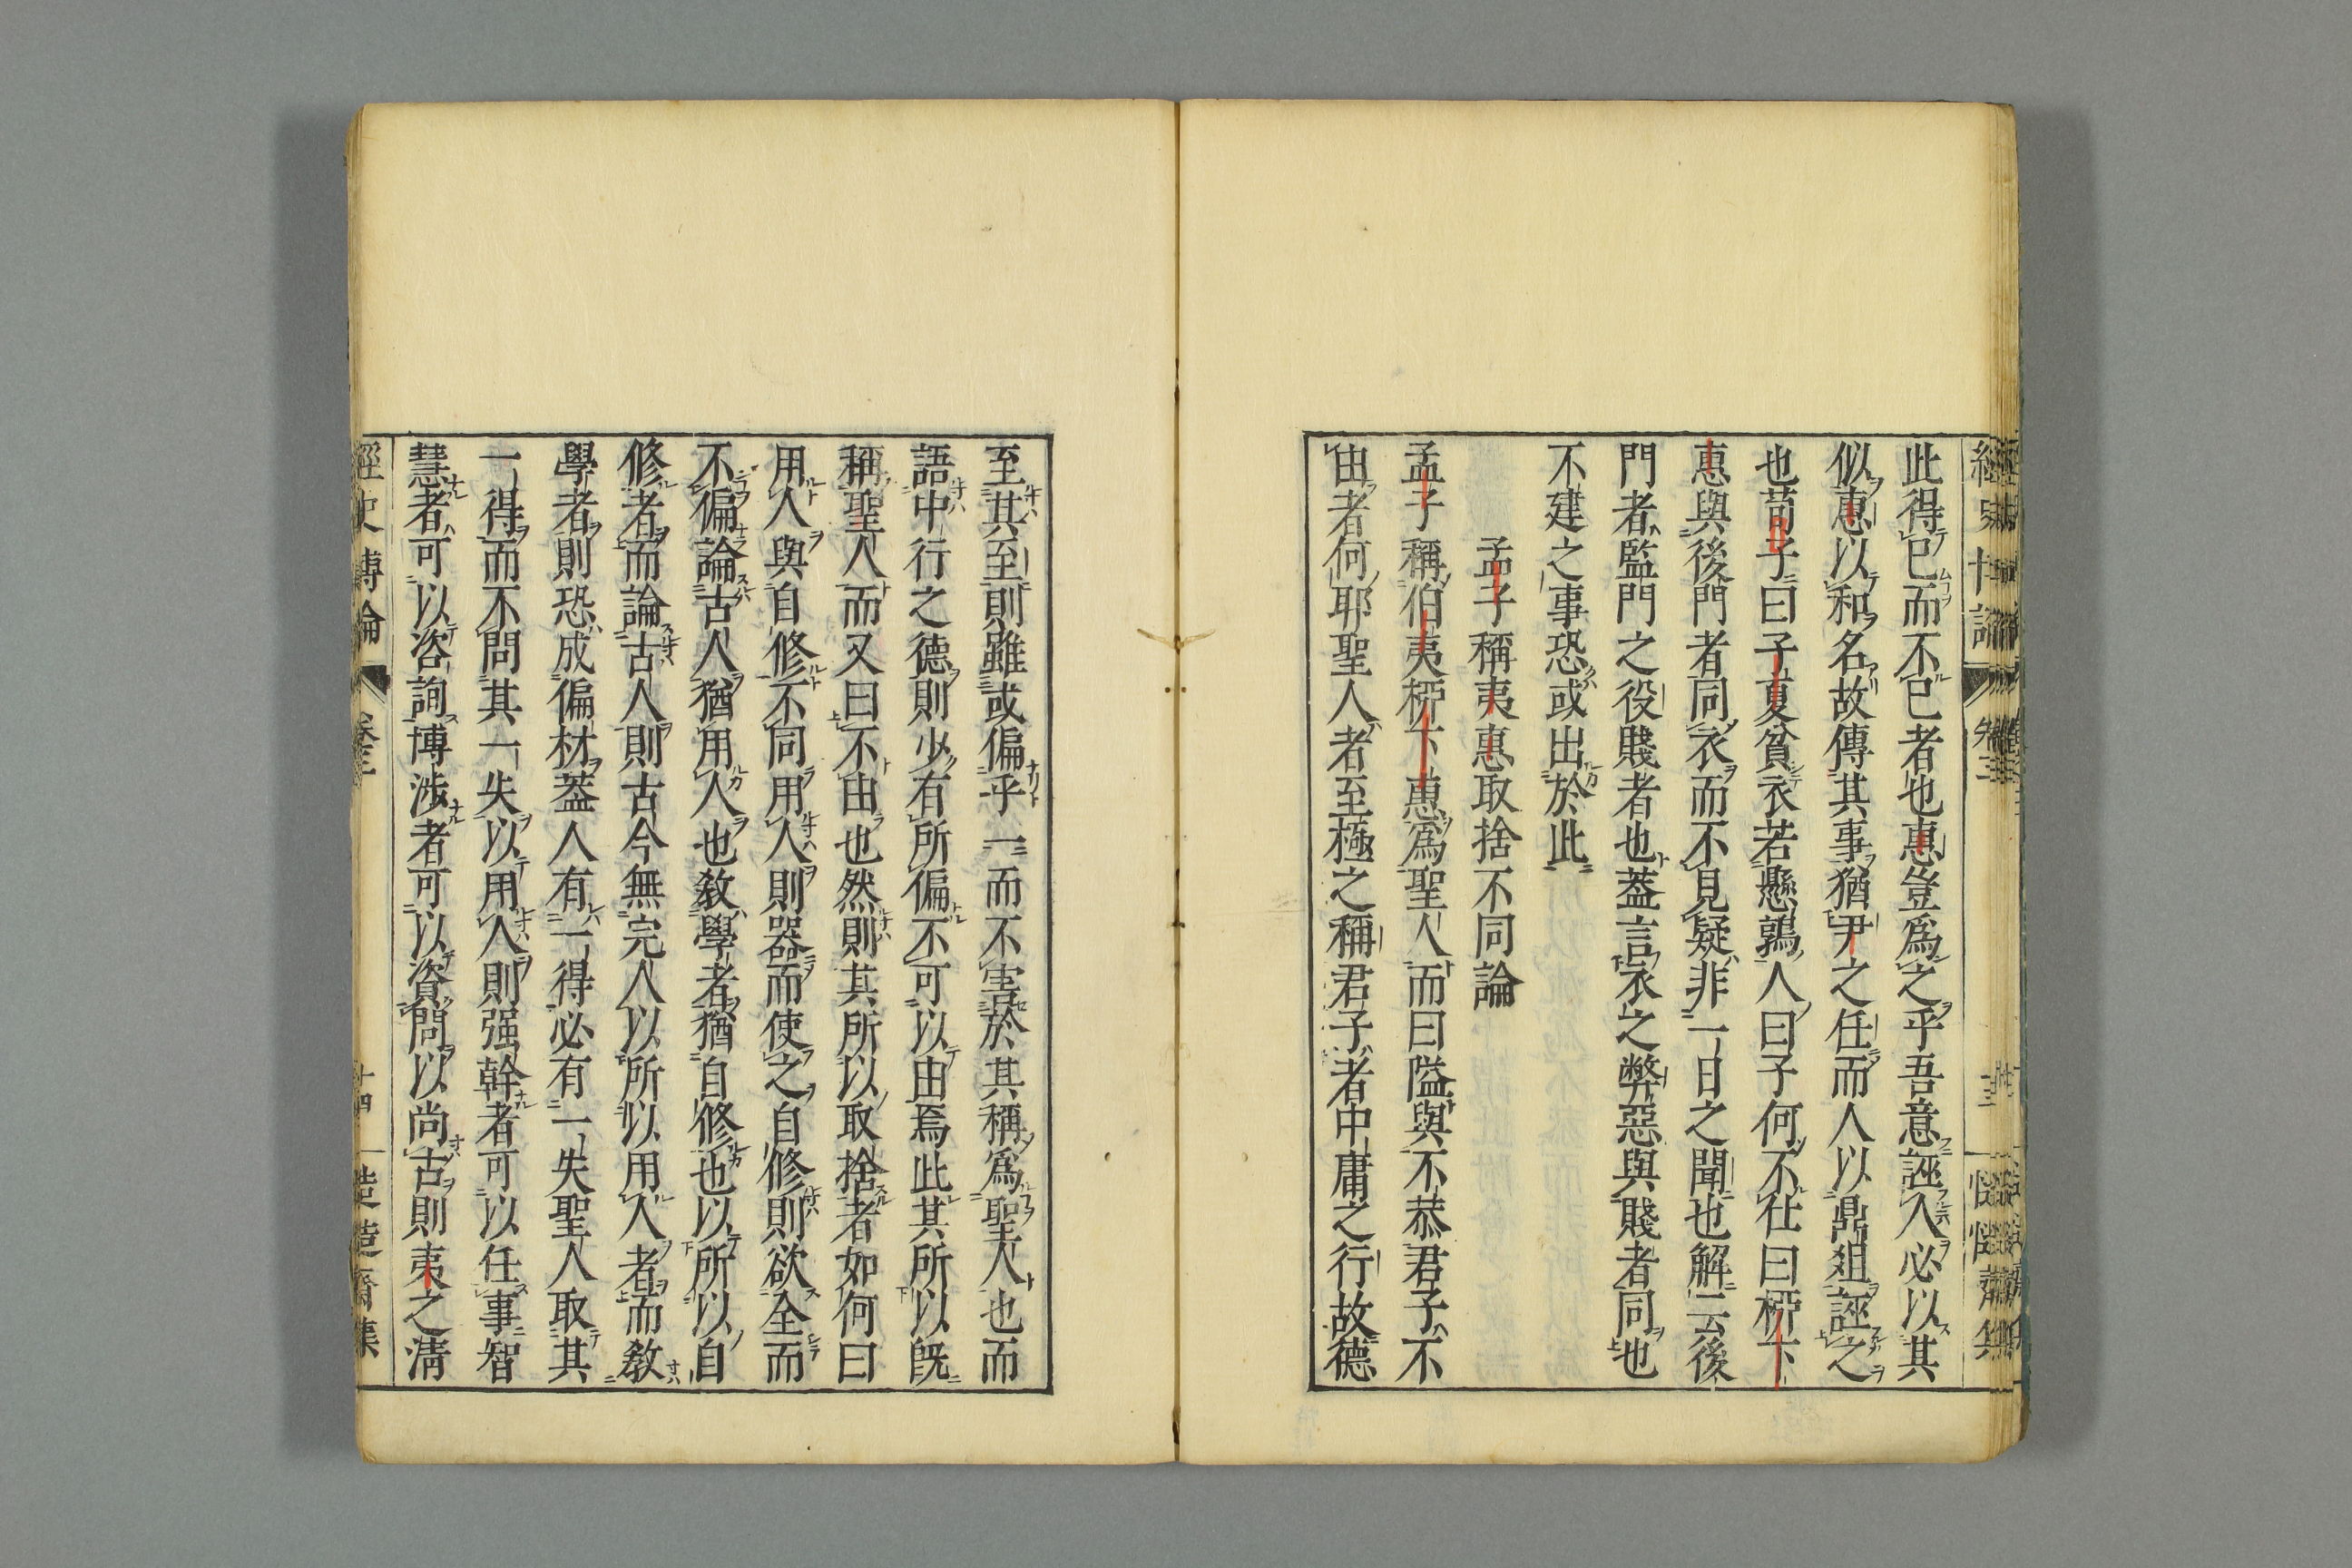 此得已而不已者也惠豈爲之乎吾意誣人必以其
似惠以和名故傳其事猶尹之任而人以鼎俎誣之
也荀子曰子夏貧衣若懸鶉人曰子何不仕曰桺下
惠與後門者同衣而不見疑非一日之聞也解云後
門者監門之役賤者也葢言衣之弊惡與賤者同也
不建之事恐或出於此
孟子稱夷惠取捨不同論
孟子稱伯夷桺下惠爲聖人而曰隘與不恭君子不
由者何耶聖人者至極之稱君子者中庸之行故德
至其至則雖或偏乎一而不害於其稱爲聖人也而
語中行之德則少有所偏不可以由焉此其所以旣
稱聖人而又曰不由也然則其所以取捨者如何曰
用人與自修不同用人則器而使之自修則欲全而
不偏論古人猶用人也敎學者猶自修也以所以自
修者而論古人則古今無完人以所以用人者而敎
學者則恐成偏材葢人有一得必有一失聖人取其
一得而不問其一失以用人則强幹者可以任事智
慧者可以咨詢博涉者可以資問以尚古則夷之淸
經史博論 卷三 十四 慥慥齋集